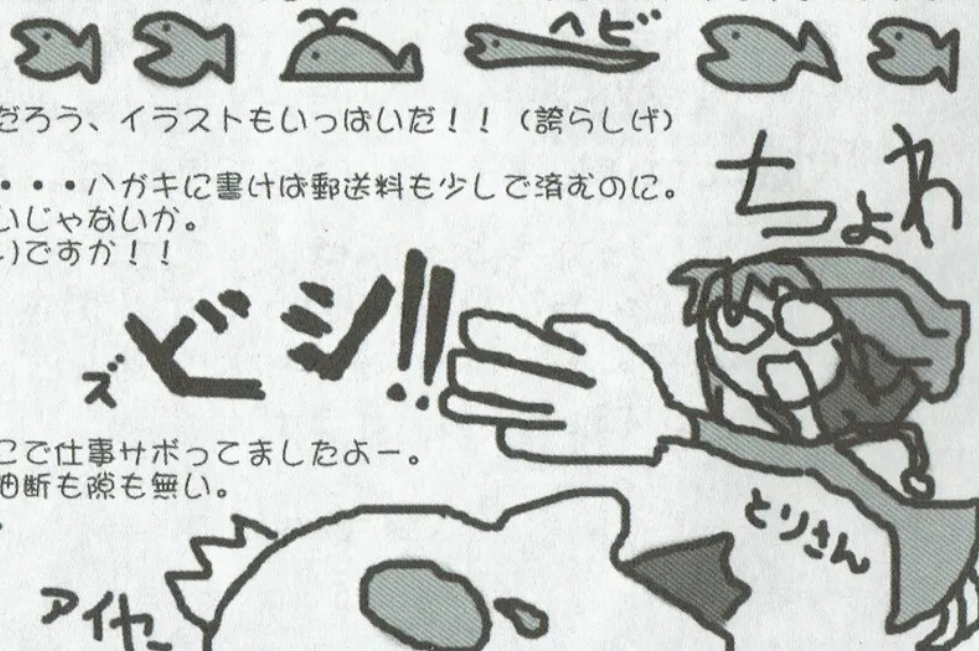 ヘビ
だろう、イラストもいっぱいだ！！（誇らしげ）
・・・ハガキに書けば郵送料も少しで済むのに。
いじゃないか。
い)ですか！！
ちょわ
ズビシ!!
こで仕事サボってましたよー。
油断も隙も無い。
とりさん
アイヤー